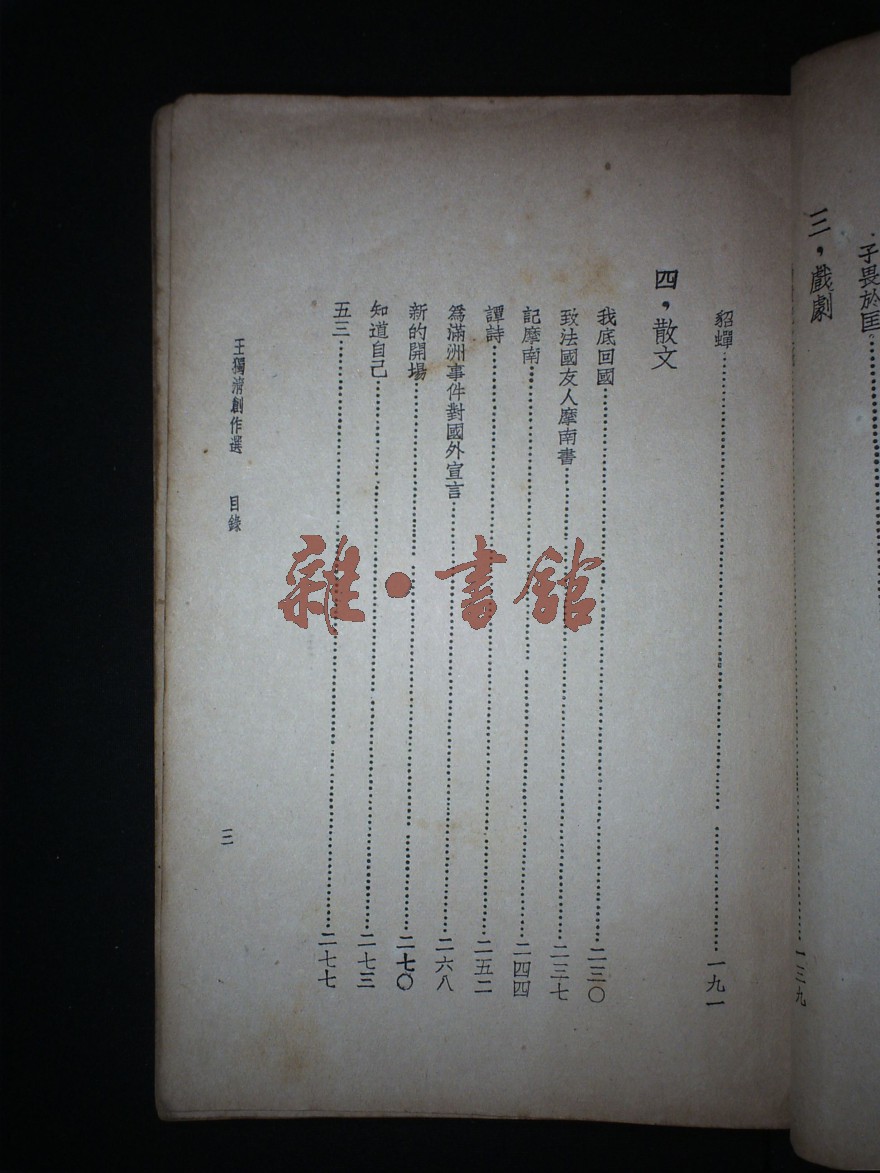 子畏於匡
三，戲劇
一三九
貂蟬……一九一
四，散文
我底回國……二三〇
致法國友人摩南書……二三七
記摩南……二四四
譚詩……二五二
爲滿洲事件對國外宣言……二六八
新的開場……二七〇
知道自己……二七三
五三……二七七
王獨清創作選 目錄
三
雜·書館